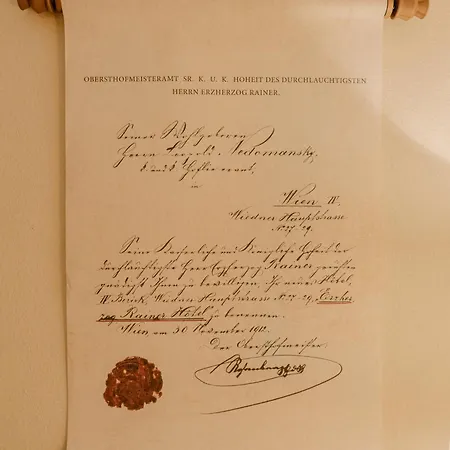 OBERSTHOFMEISTERAMT SR. K. U. K. HOHEIT DES DURCHLAUCHTIGSTEN
HERRN ERZHERZOG RAINER.
Seiner Wohlgeboren
Herrn Leopold Nedomansky,
k. und k. Hoflieferant,
in
Wien IV.
Wiedner Hauptstrasse
No 27-29.
Seine Kaiserliche und Königliche Hoheit der
durchlauchtigste Herr Erzherzog Rainer geruhten
gnädigst Ihnen zu bewilligen, Ihr neues Hôtel,
IV. Bezirk, Wiedner Hauptstrasse No 27-29, „Erzher-
zog Rainer Hôtel" zu benennen.
Wien, am 30 November 1912.
Der Obersthofmeister: